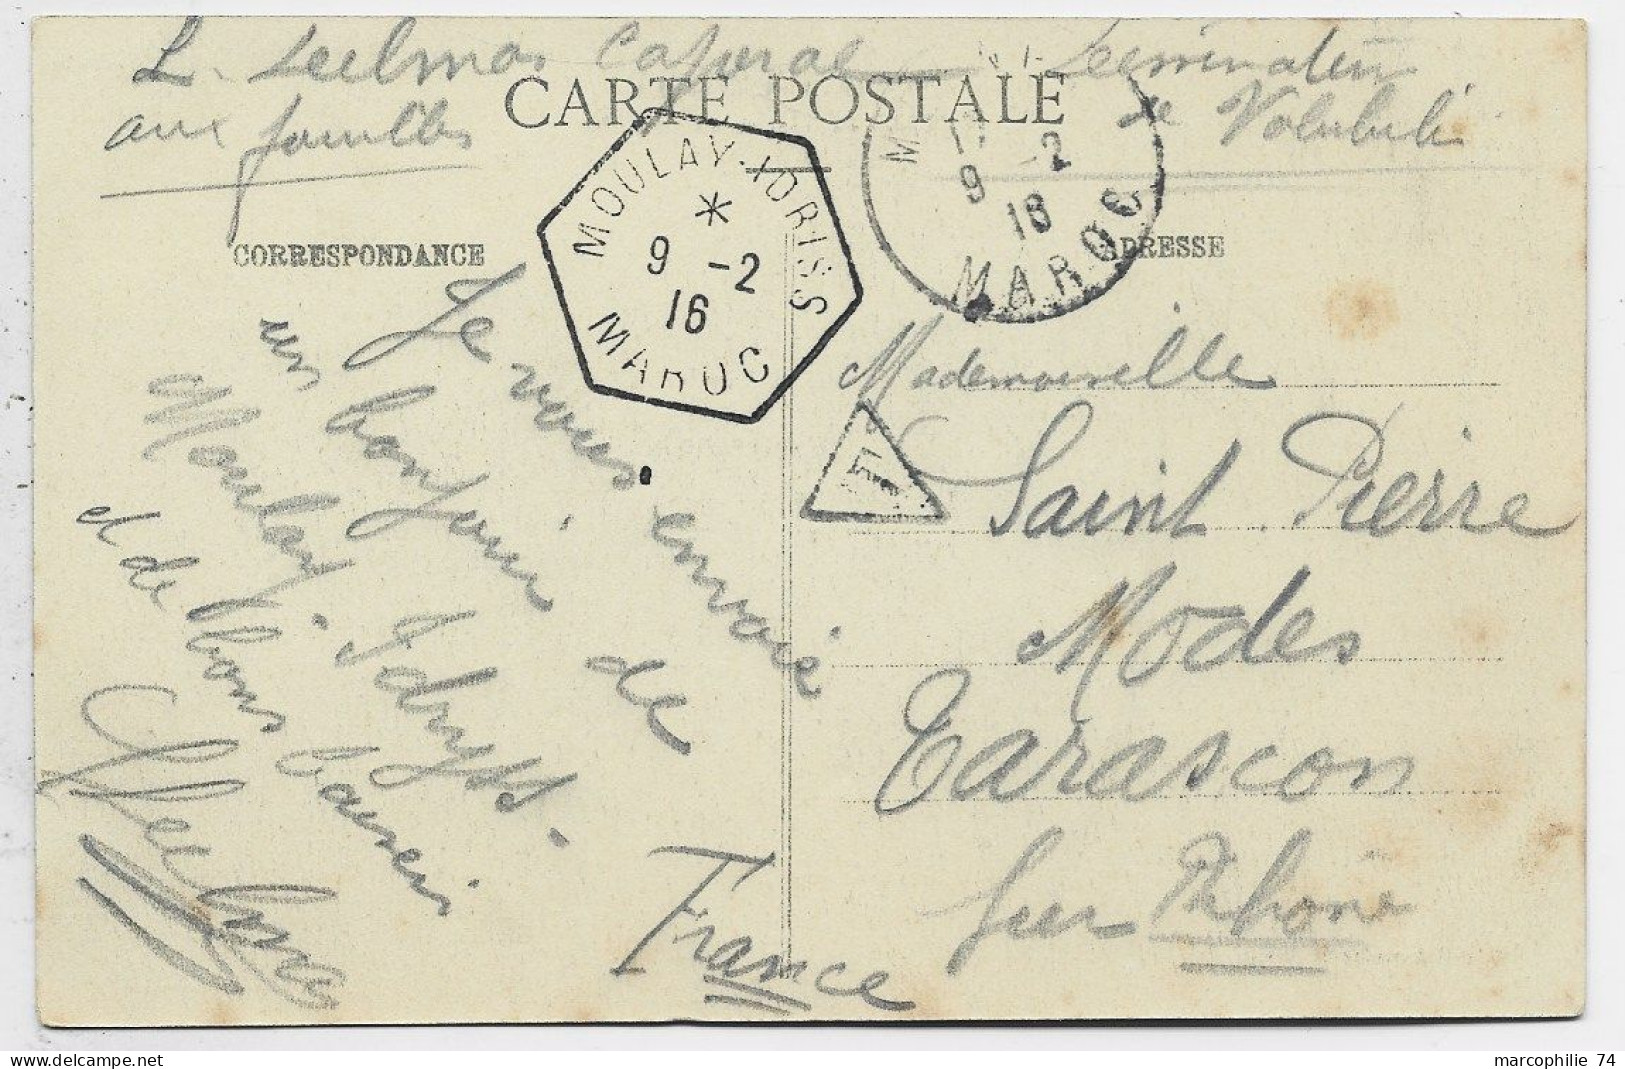 L. Seelmas Caporal
aux fouilles
de Volubilis
CARTE POSTALE
MOULAY-IDRISS
*
9 -2
16
MAROC
M
11
9 -2
16
MAROC
CORRESPONDANCE
ADRESSE
Je vous envoie
un bonjour de
Moulay. Idryss.
et de bons baisers
Mademoiselle
T
Saint Pierre
Modes
Tarascon
sur Rhône
France
marcophilie 74